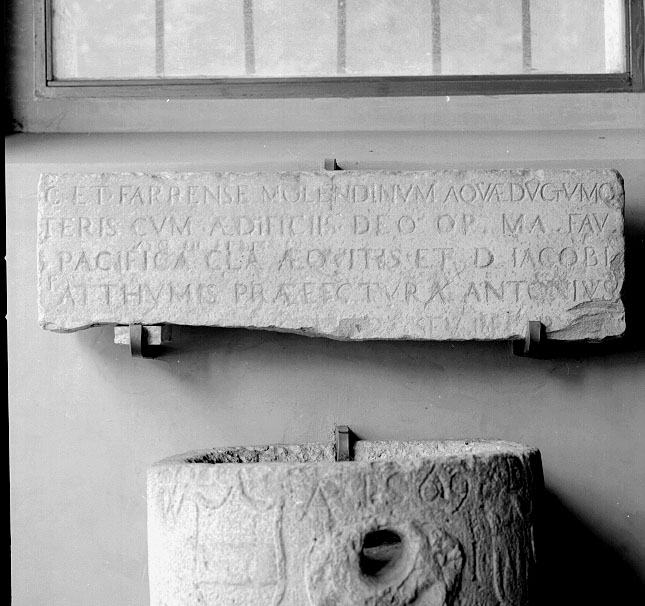 C ET FARRENSE MOLENDINVM AQVÆDVCTVMQ
TERIS CVM ÆDIFICIIS DEO OP. MA. FAV
PACIFICA CLA ÆQVITIS ET D IACOBI
ATTHVMIS PRÆFECTVRA ANTONIVS
1569